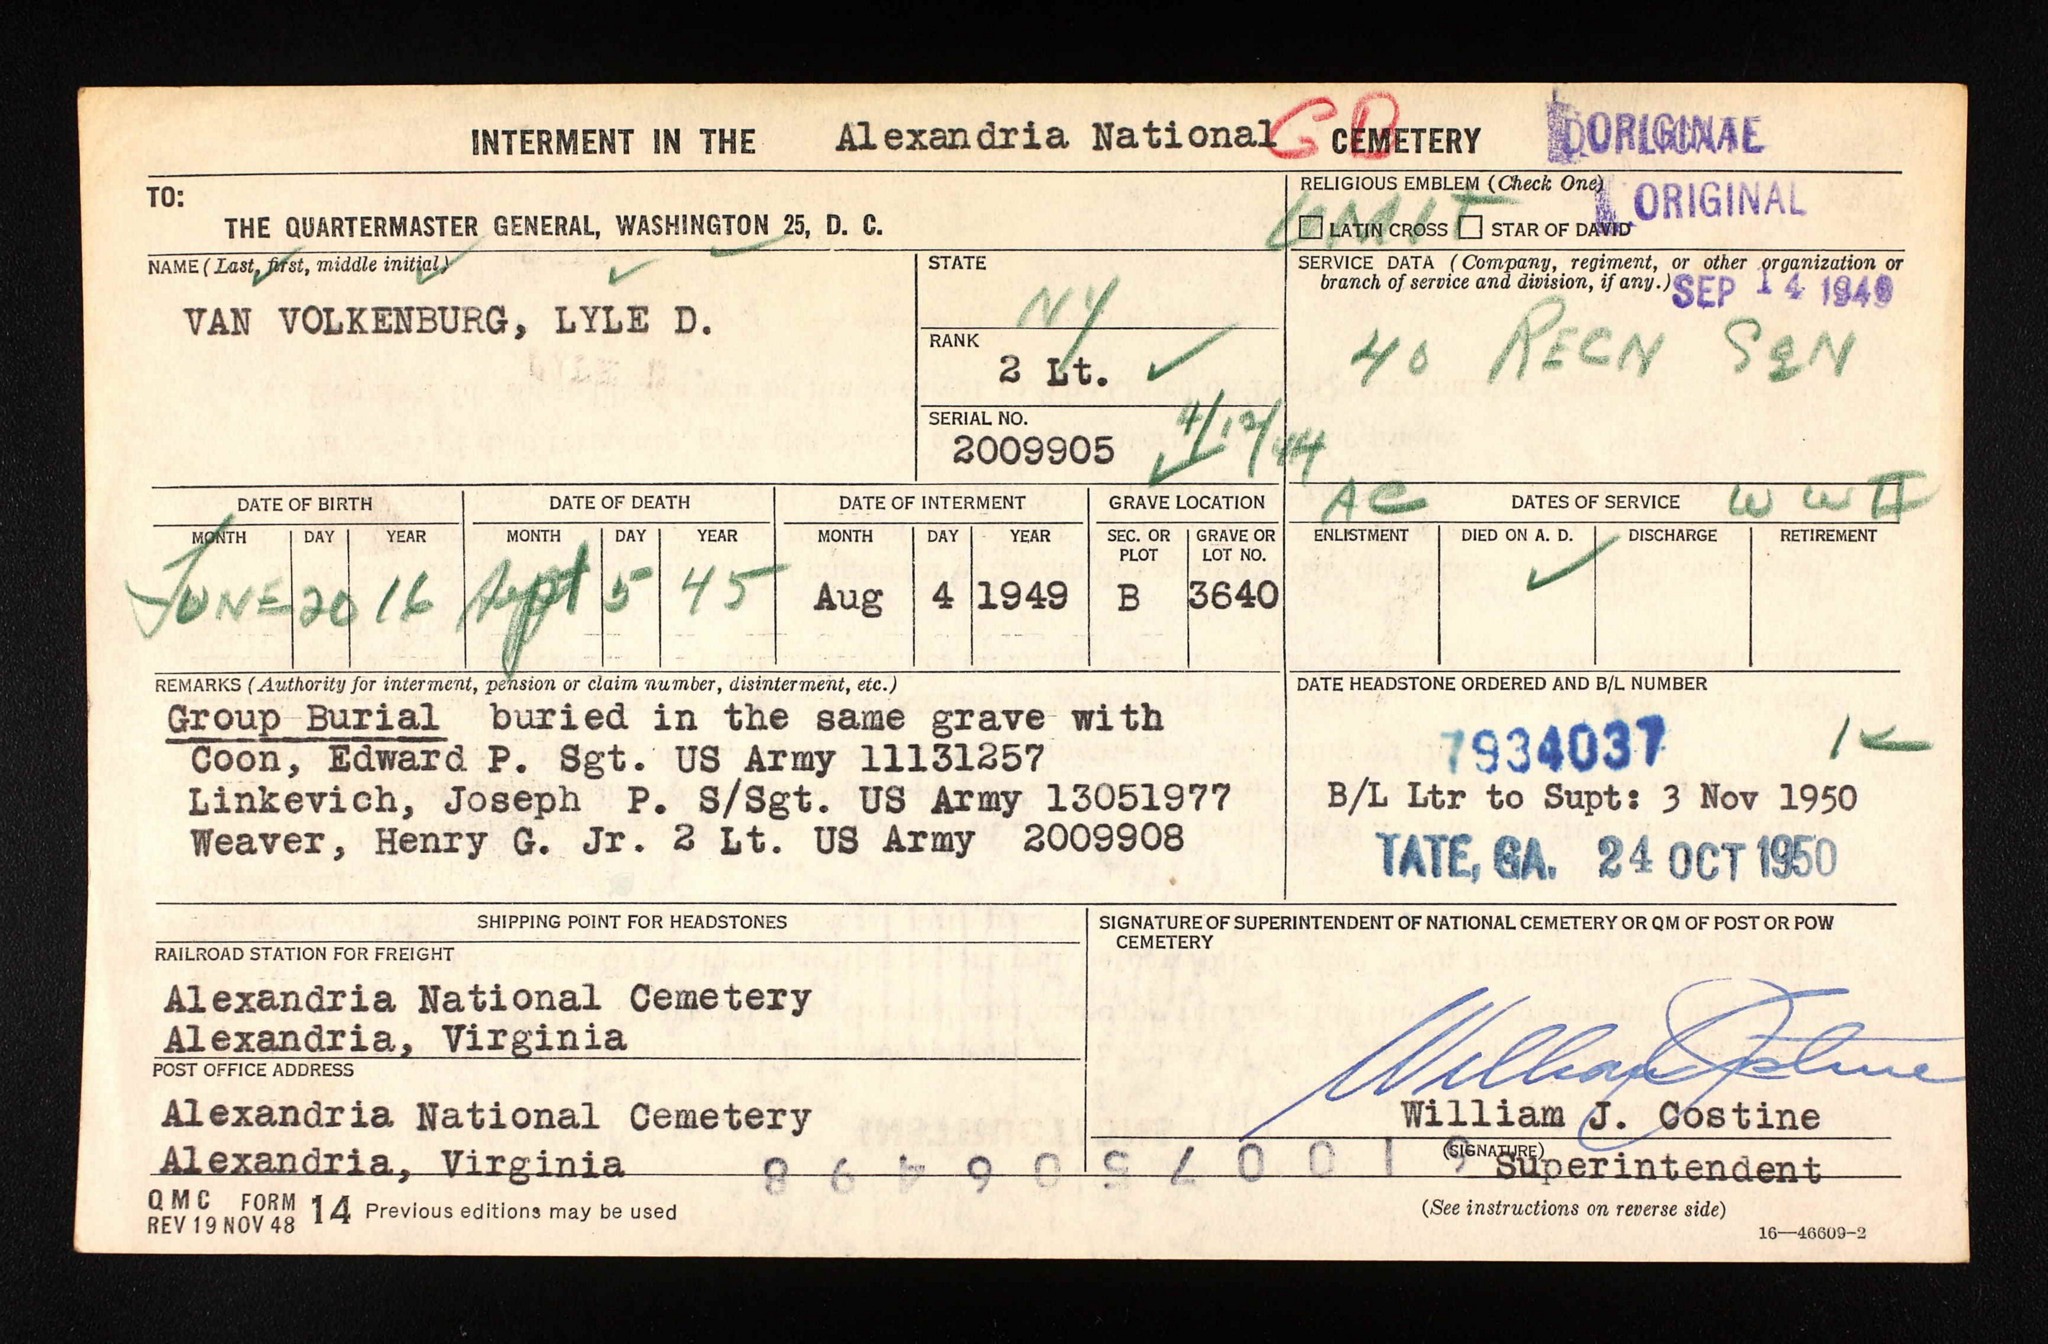 INTERMENT IN THE Alexandria National CEMETERY
GB
ORIGINAL
ORIGINAL
TO:
THE QUARTERMASTER GENERAL, WASHINGTON 25, D. C.
RELIGIOUS EMBLEM (Check One)
LATIN CROSS STAR OF DAVID
OMIT
NAME (Last, first, middle initial)
VAN VOLKENBURG, LYLE D.
STATE
NY
RANK
2 Lt.
SERIAL NO.
2009905
4/12/44
SERVICE DATA (Company, regiment, or other organization or
branch of service and division, if any.)
SEP 14 1949
40 RECN SQN
AC
WWII
DATE OF BIRTH DATE OF DEATH DATE OF INTERMENT GRAVE LOCATION DATES OF SERVICE
MONTH DAY YEAR MONTH DAY YEAR MONTH DAY YEAR SEC. OR PLOT GRAVE OR LOT NO. ENLISTMENT DIED ON A. D. DISCHARGE RETIREMENT
JUNE 20 16 Sept 5 45 Aug 4 1949 B 3640
REMARKS (Authority for interment, pension or claim number, disinterment, etc.)
Group Burial buried in the same grave with
Coon, Edward P. Sgt. US Army 11131257
Linkevich, Joseph P. S/Sgt. US Army 13051977
Weaver, Henry G. Jr. 2 Lt. US Army 2009908
DATE HEADSTONE ORDERED AND B/L NUMBER
7934037
B/L Ltr to Supt: 3 Nov 1950
TATE, GA. 24 OCT 1950
SHIPPING POINT FOR HEADSTONES
RAILROAD STATION FOR FREIGHT
Alexandria National Cemetery
Alexandria, Virginia
POST OFFICE ADDRESS
Alexandria National Cemetery
Alexandria, Virginia
SIGNATURE OF SUPERINTENDENT OF NATIONAL CEMETERY OR QM OF POST OR POW
CEMETERY
William J Costine
William J. Costine
(SIGNATURE)
Superintendent
QMC FORM
REV 19 NOV 48 14 Previous editions may be used
(See instructions on reverse side)
16—46609-2